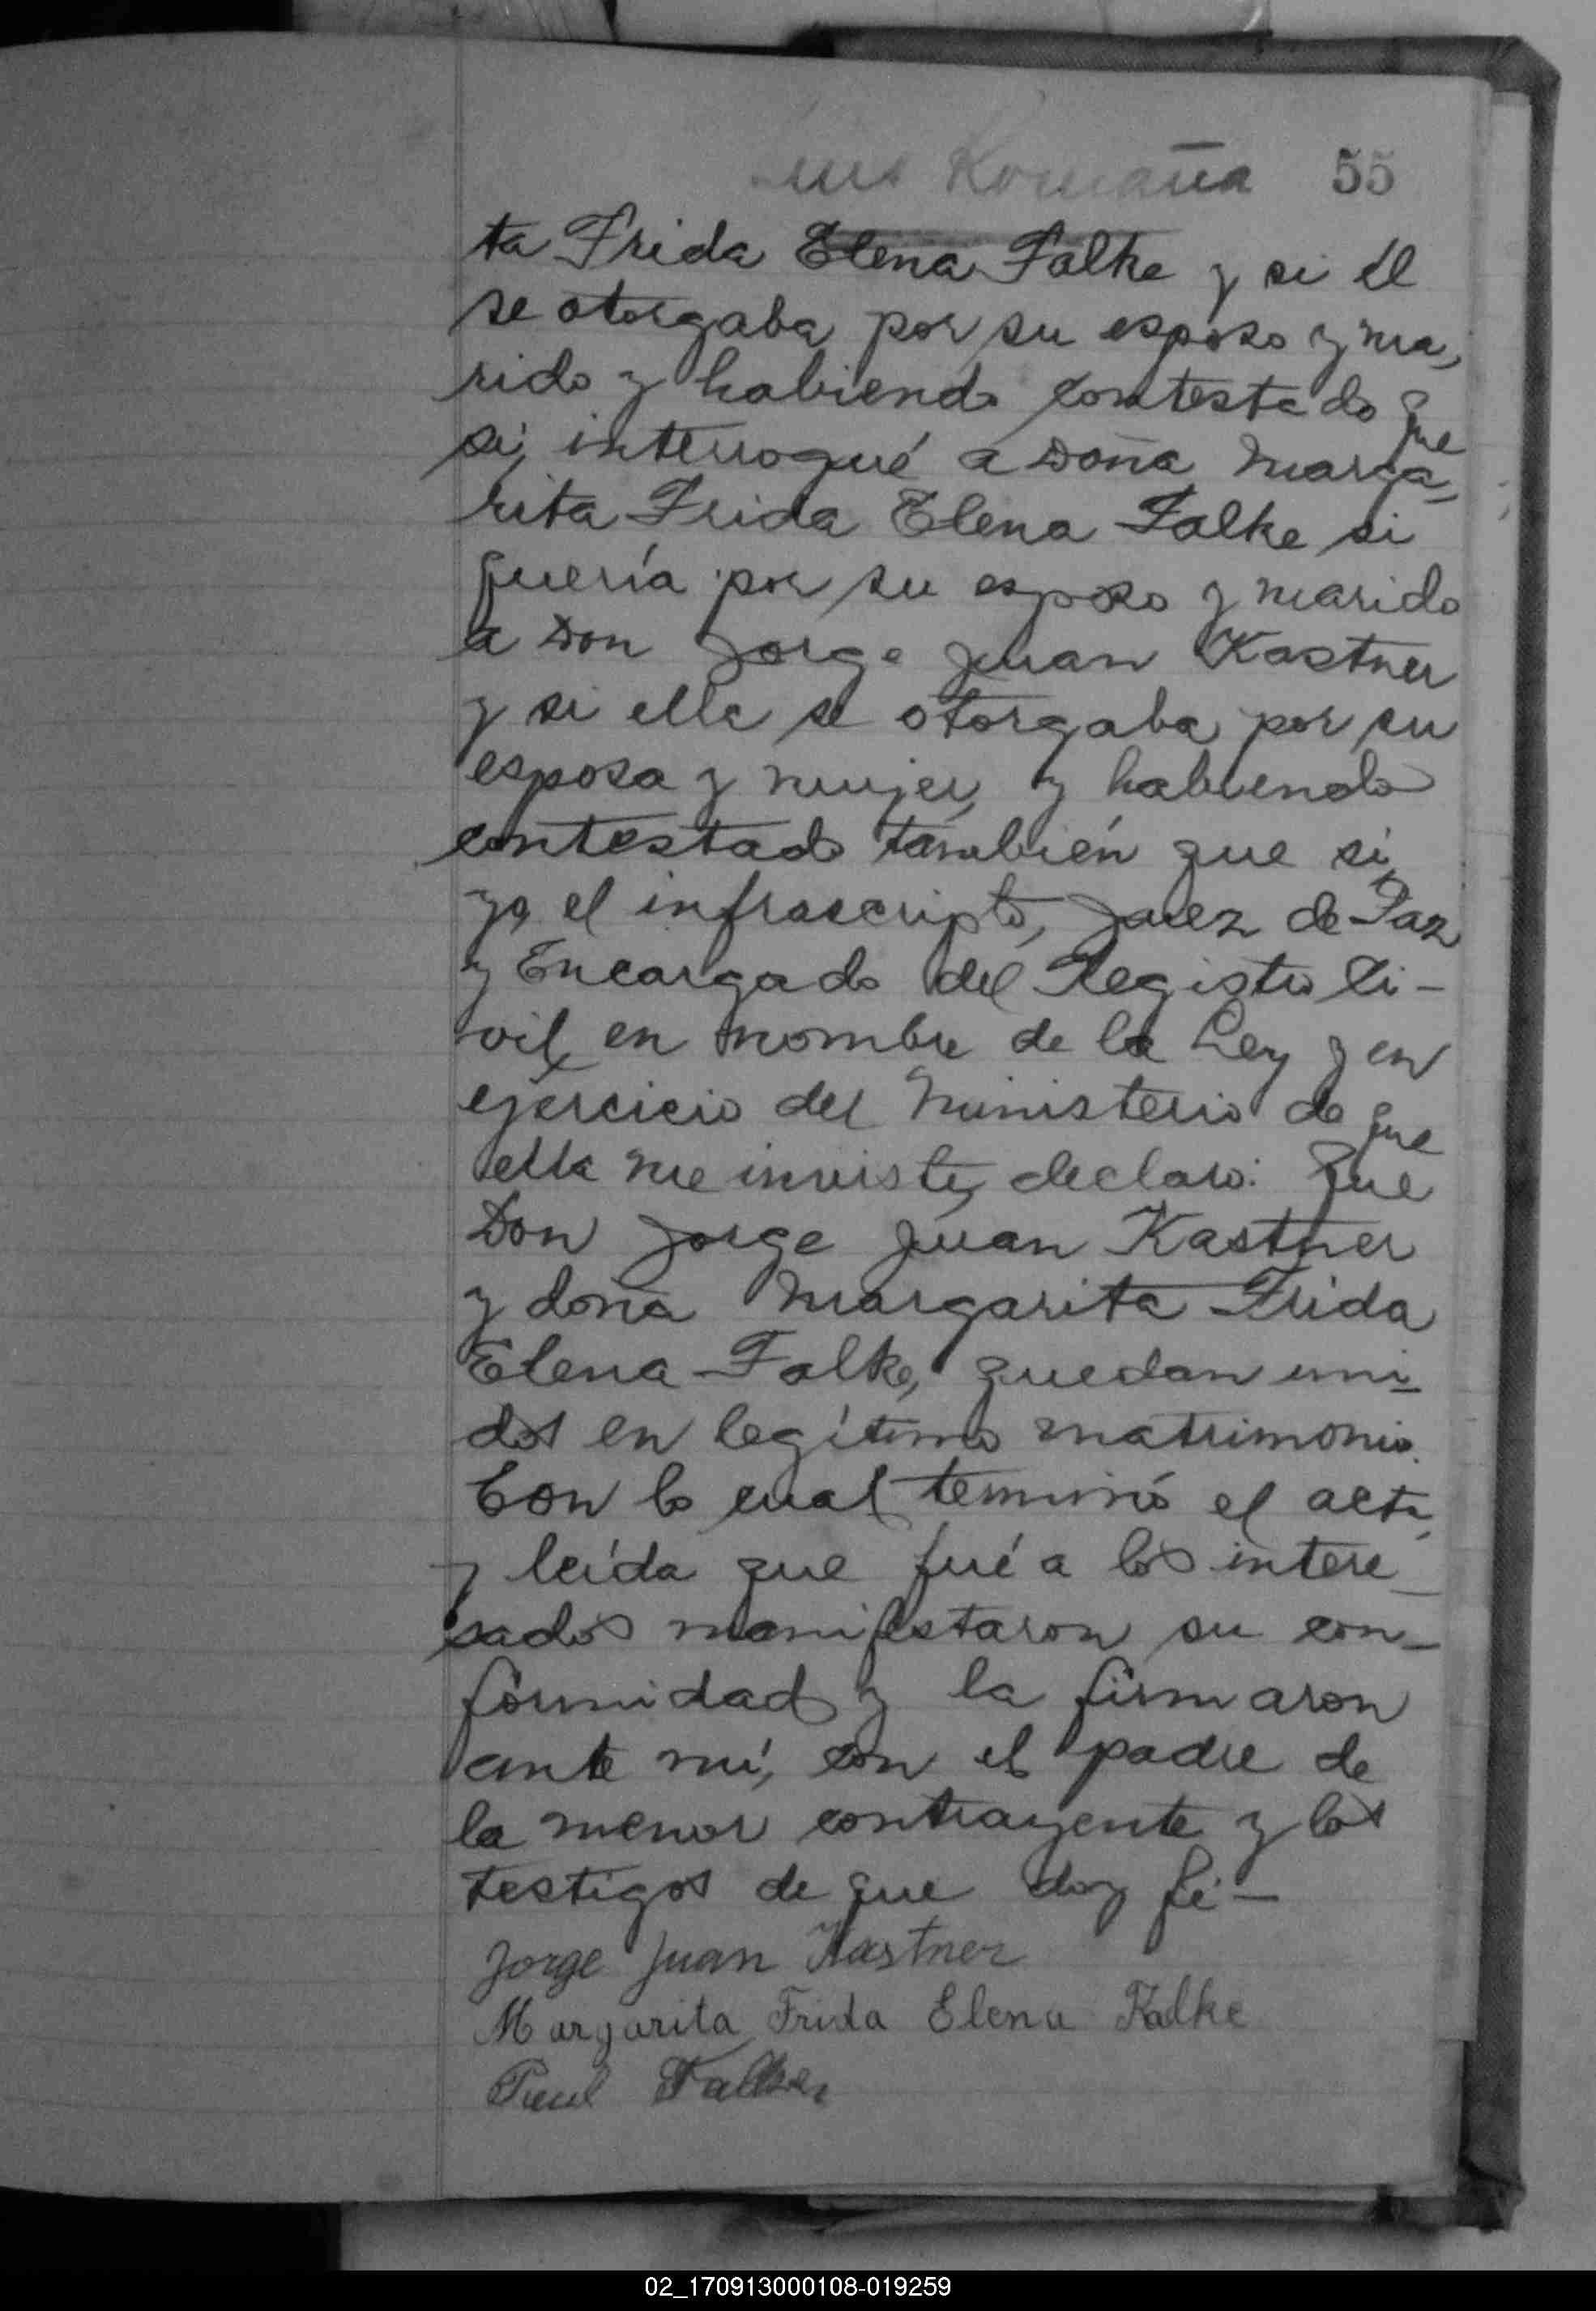 Romaña 55
ta Frida Elena Falke y si él
se otorgaba por su esposo y ma,
rido y habiendo contestado que
si, interrogué a Doña Marga-
rita Frida Elena Falke si
quería por su esposo y marido
a Don Jorge Juan Kastner
y si ella se otorgaba por su
esposa y mujer, y habiendo
contestado también que si,
yo, el infrascripto, Juez de Paz
y Encargado del Registro Ci-
vil, en nombre de la Ley y en
ejercicio del Ministerio de que
ella me inviste, declaro: Que
Don Jorge Juan Kastner
y doña Margarita Frida
Elena Falke, quedan uni-
dos en legítimo matrimonio.
Con lo cual terminó el acta,
y leída que fué a los intere-
sados manifestaron su con-
formidad y la firmaron
ante mí, con el padre de
la menor contrayente y los
testigos de que doy fé-
Jorge Juan Kastner
Margarita Frida Elena Falke
Paul Falke
02_170913000108-019259